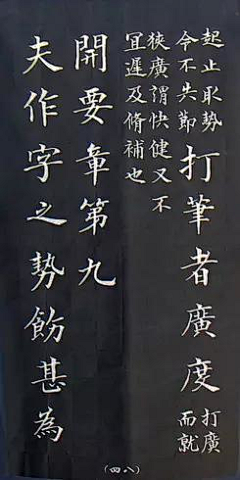 起止取勢
令不失節
打筆者廣度
打廣
而就
狹廣謂快健又不
冝遲及脩補也
開要章第九
夫作字之勢飭甚為
(八四)